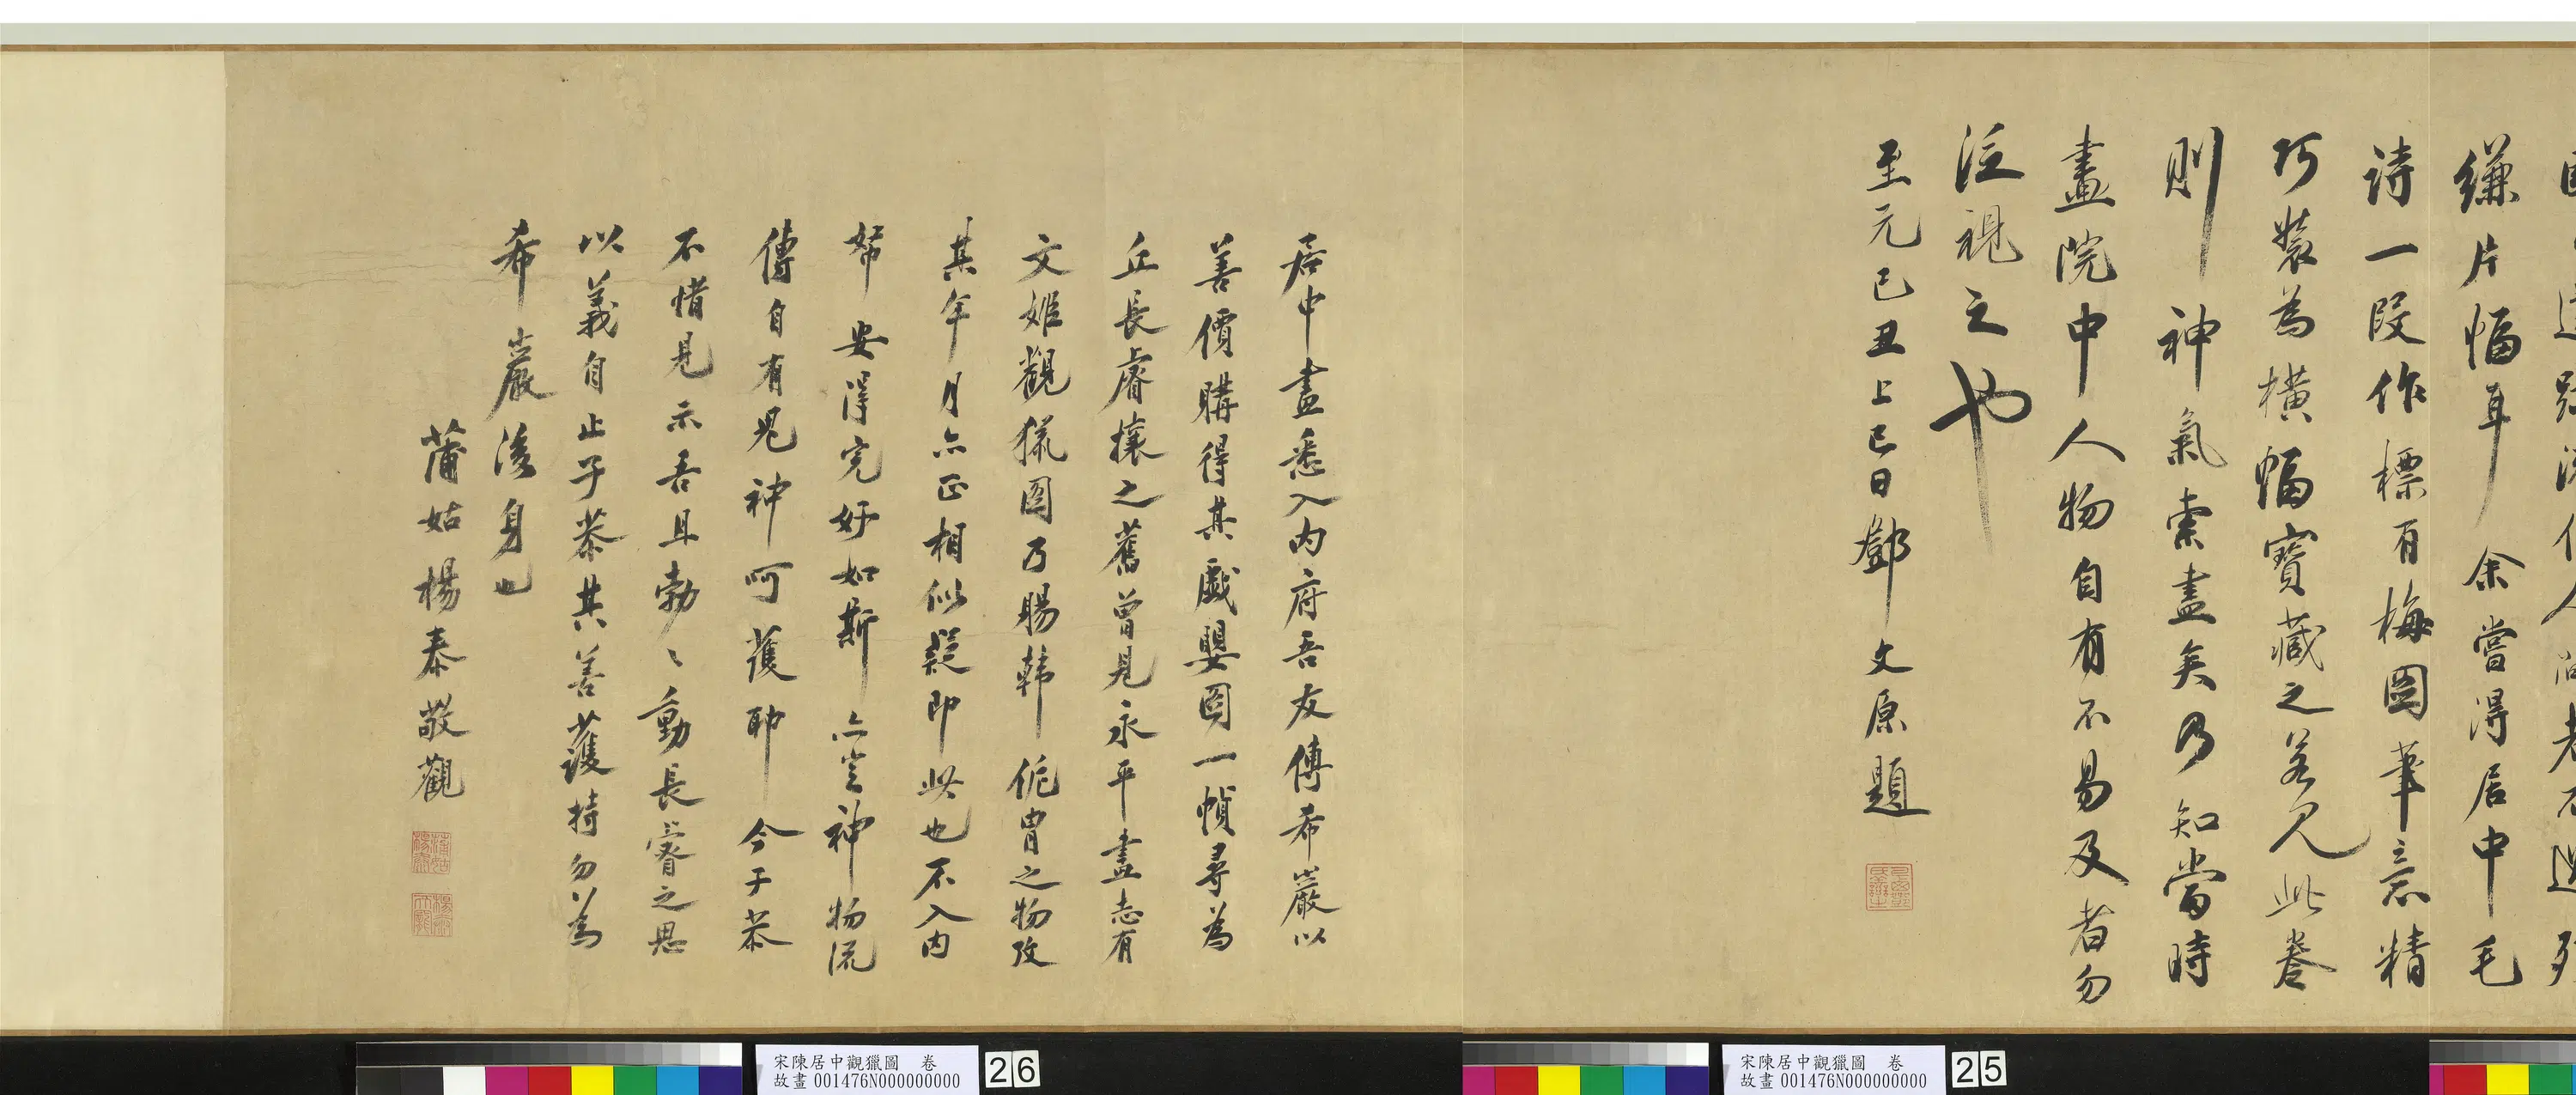 縑片幅耳余嘗得居中毛
詩一段作標有梅圖筆意精
巧裝為橫幅寶藏之若見此卷
則神氣索盡矣乃知當時
畫院中人物自有不易及者勿
泛視之也
至元己丑上巳日鄧文原題
居中畫悉入内府吾友傅希巖以
善價購得其戲嬰圖一幀尋為
丘長睿攘之舊曾見永平畫志有
文姬觀獵圖乃賜韓侂胄之物攷
其年月亦正相似疑即此也不入内
帑安得完好如斯亦豈神物流
傳自有鬼神呵護耶今子恭
不惜見示吾且勃〻動長睿之思
以義自止子恭其善護持勿為
希巖後身也
蒲姑楊泰敬觀
宋陳居中觀獵圖 卷
故畫 001476N000000000
25
宋陳居中觀獵圖 卷
故畫 001476N000000000
26